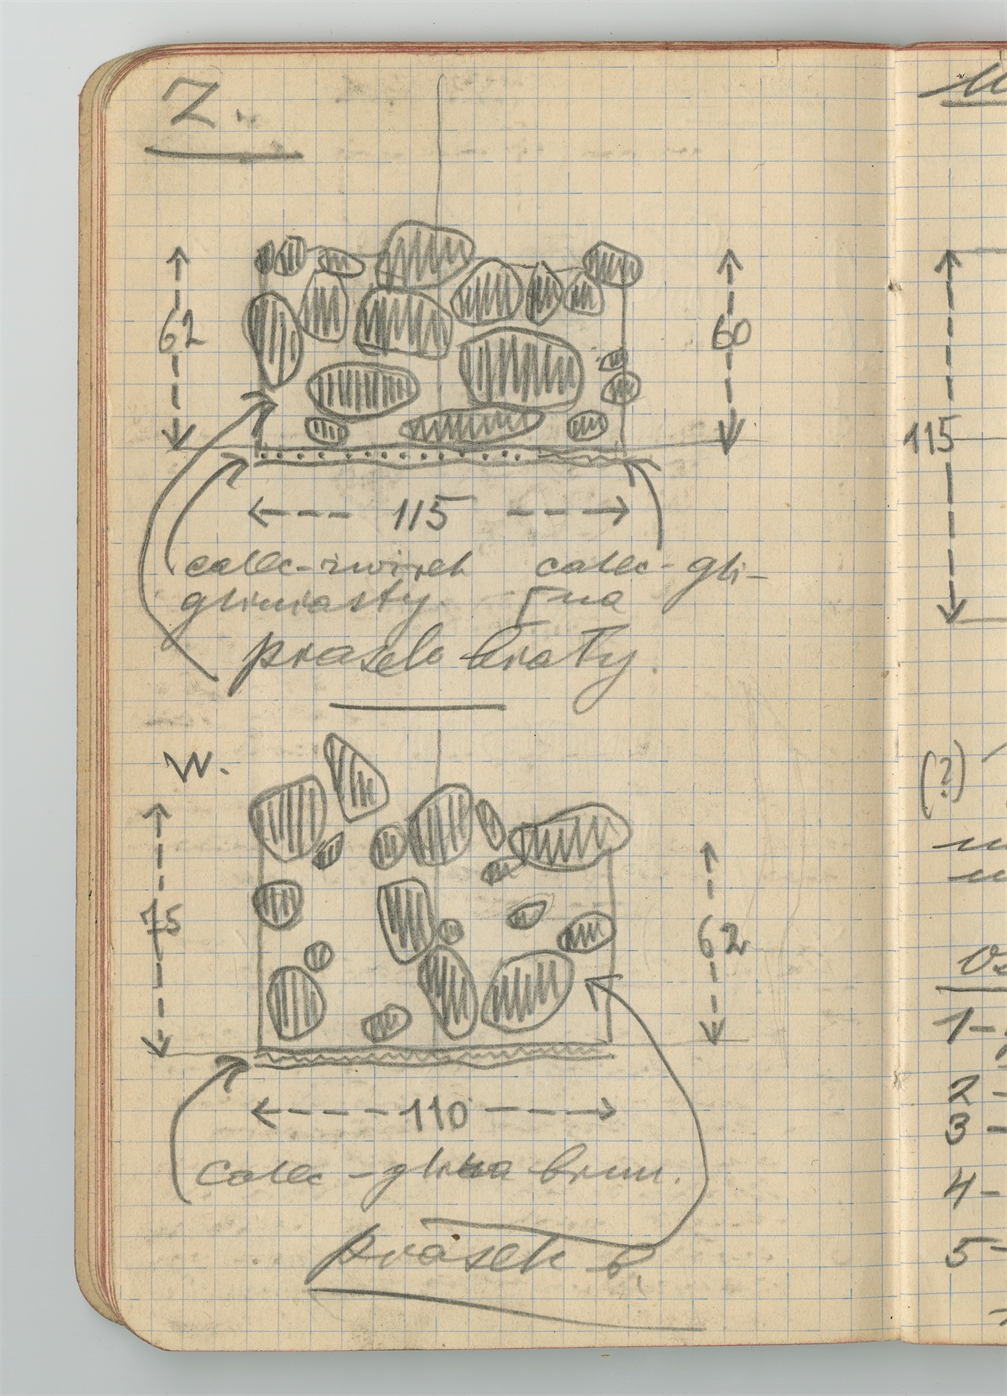 Z.
62
60
115
calec-żwirek
gliniasty.
calec-gli-
na
piasek biały.
W.
75
62
110
calec-glina brun.
piasek b.
115
(?)
1-
2-
3-
4-
5-